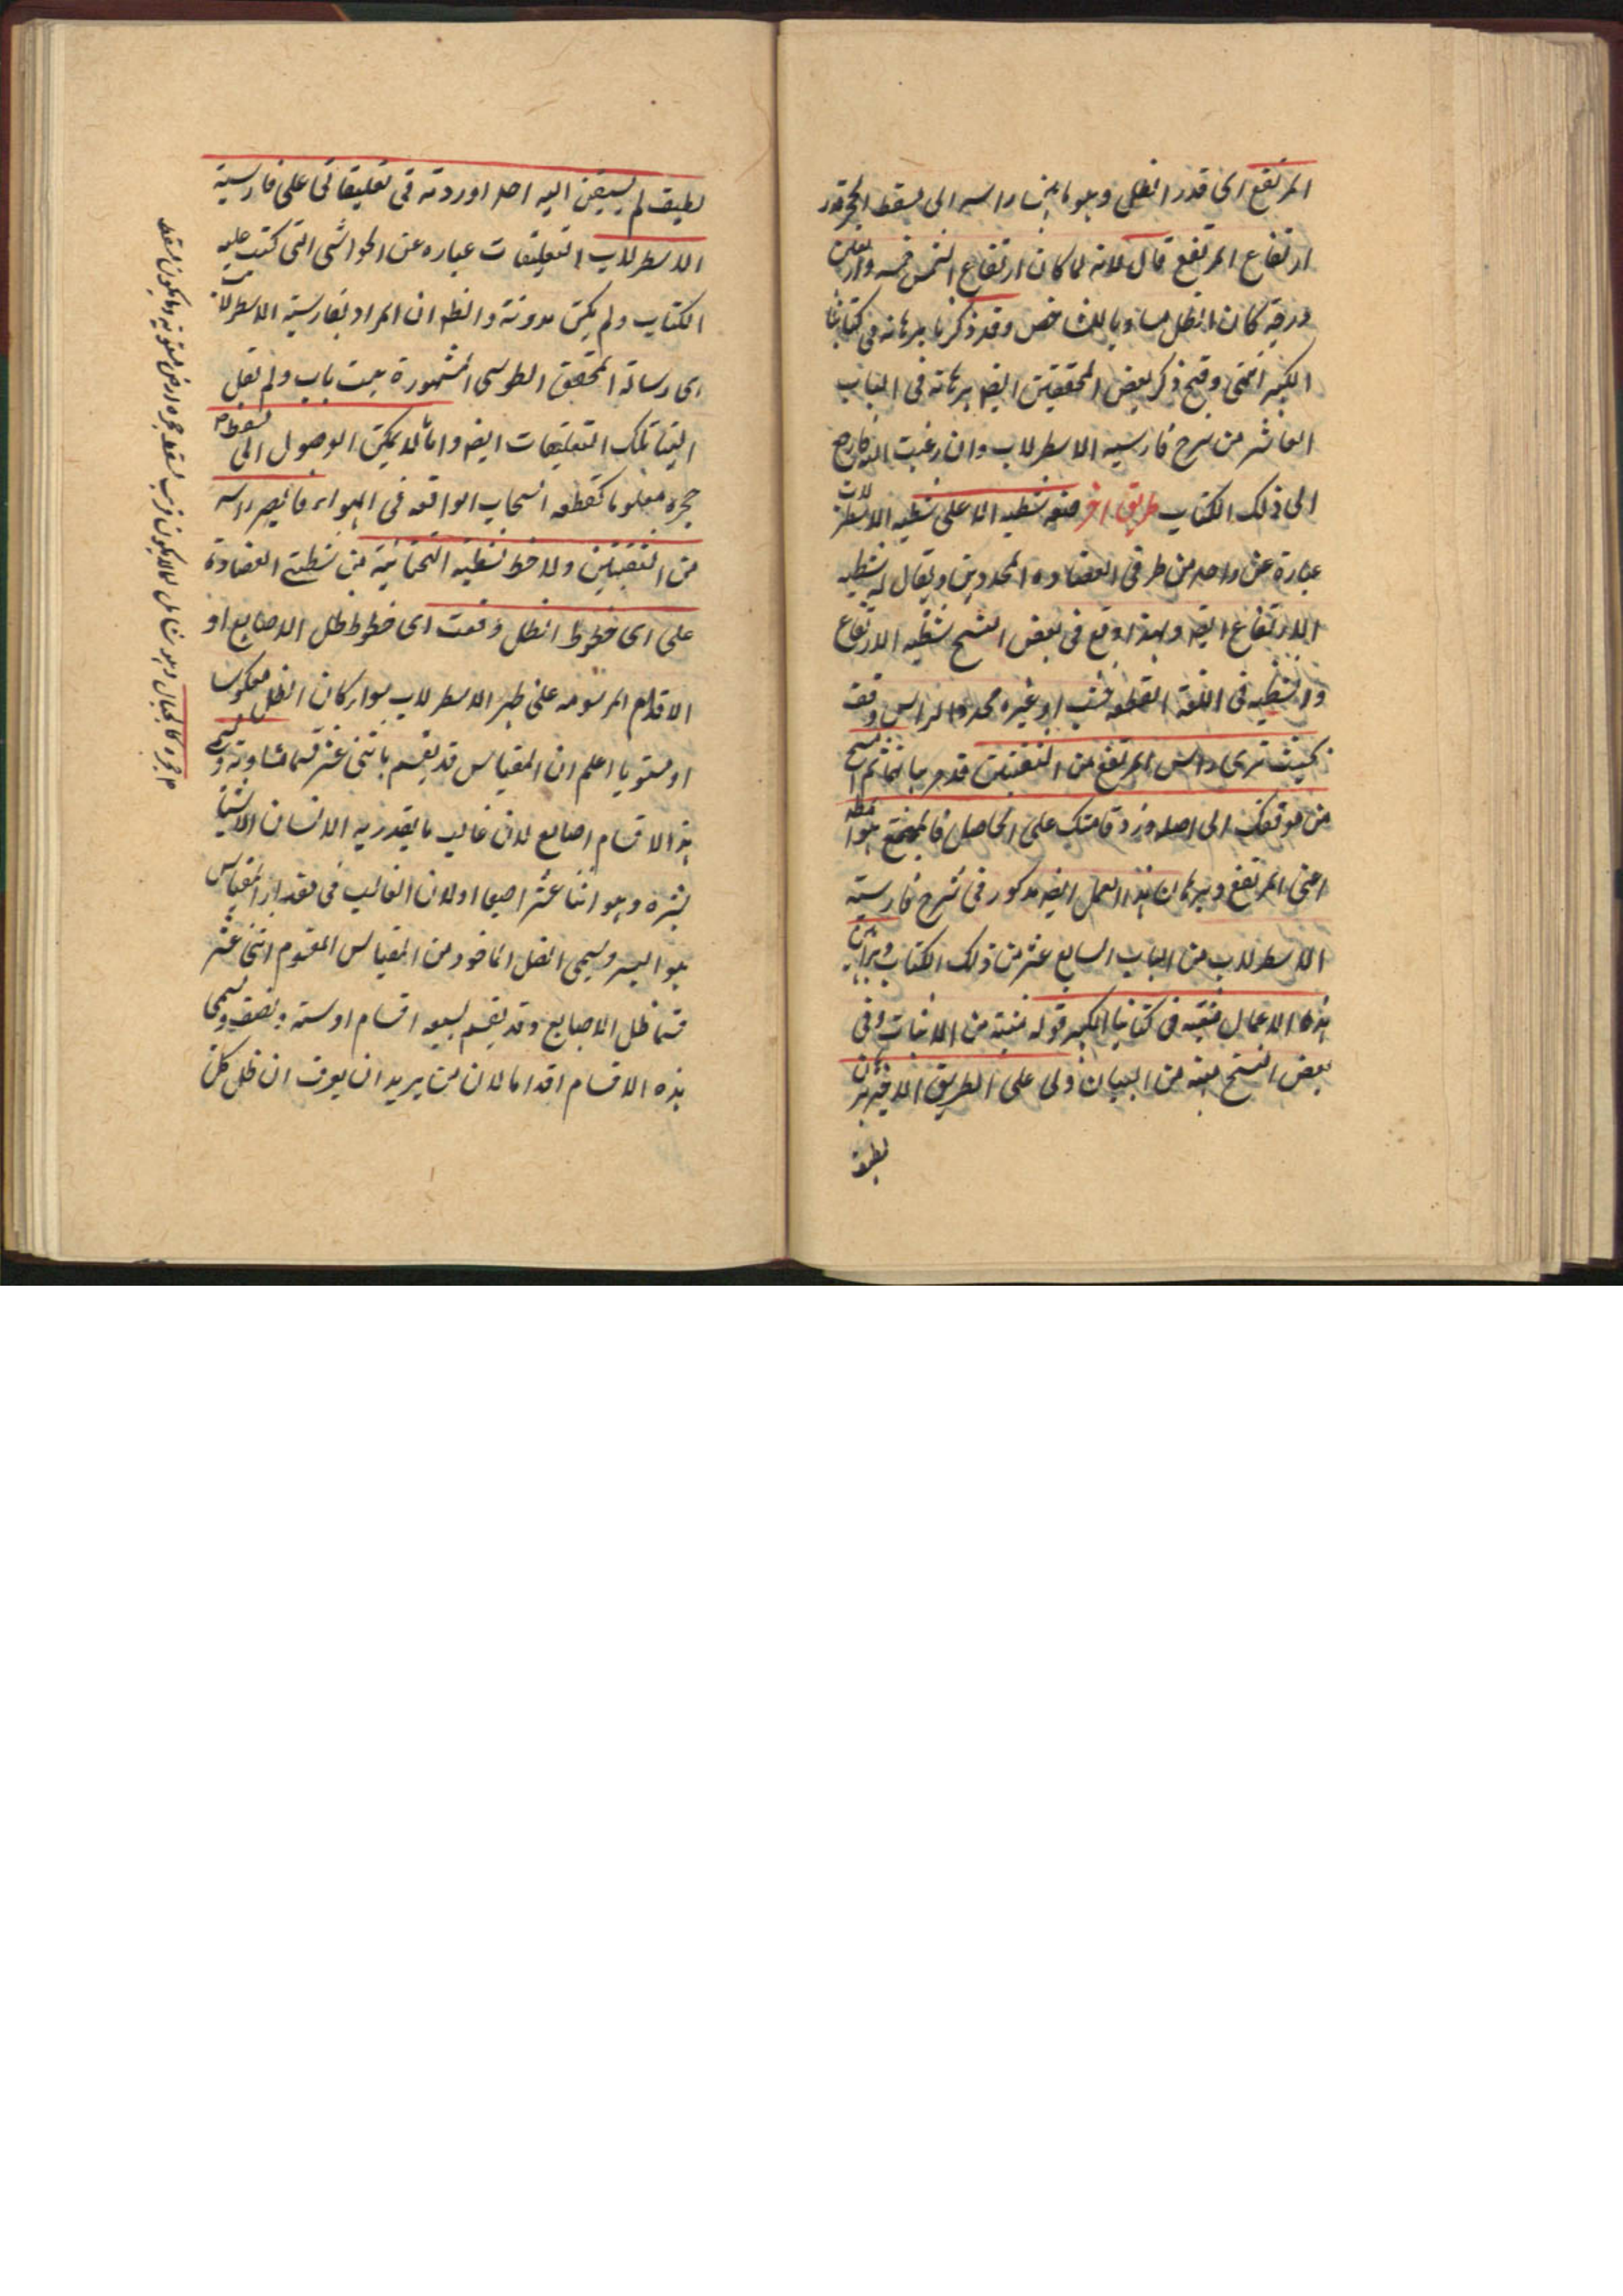 المرتفع اى قدر الظل وهو ما بين راسه الى مسقط الحجر قدر
ارتفاع المرتفع قال لانه لما كان ارتفاع الشمس خمسه واربعين
درجة كان الظل مساويا للشاخص وقد ذكرنا برهانه فى كتابنا
الكبير انتهى وقد ذكر بعض المحققين ايضا برهانه فى الباب
العاشر من شرح فارسيه الاسطرلاب وان رغبت اليه فارجع
الى ذلك الكتاب طريق اخر ضع شظيه الا على شظيه الاسطرلاب
عبارة عن واحد من طرفى العضاده المحددين ويقال له شظيه
الارتفاع ايضا ولهذا وقع فى بعض النسخ شظيه الارتفاع
والشظيه فى اللغة القطعه خشب او غيره محدد الراس وقف
بحيث ترى راس المرتفع من الثقبتين قدم جائما ثم امسح
من موقفك الى اصله وزد قامتك على الحاصل فالمجتمع هو المط
اعنى المرتفع وبرهان هذا العمل ايضا مذكور فى شرح فارسية
الاسطرلاب من الباب السابع عشر من ذلك الكتاب وبراهين
هذه الاعمال مبينه فى كتابنا الكبير قوله مبينة من الاثبات وفى
بعض النسخ مبينه من البيان ولى على الطريق الاخير برهان
لطيف
لطيف لم يسبقن اليه احد اوردته فى تعليقاتى على فارسية
الاسطرلاب التعليقات عباره عن الحواشى التى كتبت عليه
الكتاب ولم يكن مدونة والظ ان المراد بفارسية الاسطرلاب
اى رسالة المحقق الطوسى المشهورة ببيست باب ولم نقل
الينا تلك التعليقات ايضا واما ما لا يمكن الوصول الى مسقط
حجره معلوما كقطعه السحاب الواقعه فى الهواء فابصر راسه
من الثقبتين ولاحظ شظيه التحتانية من شظيتى العضادة
على اى خطوط الظل وقعت اى خطوط ظل الاصابع او
الاقدام المرسومه على ظهر الاسطرلاب سواء كان الظل معكوسا
او مستويا اعلم ان المقياس قد يقسم باثنى عشر قسما متساوية وتسمى
هذه الاقسام اصابع لان غالب ما يقدر به الانسان الاشياء
بشبره وهو اثنا عشر اصبعا اولان الغالب فى مقدار المقياس
هو الشبر ويسمى الظل الماخوذ من المقياس المقسوم اثنى عشر
قسما ظل الاصابع وقد يقسم بسبعه اقسام او سته ونصف ويسمى
هذه الاقسام اقداما لان من يريد ان يعرف ان ظل كل